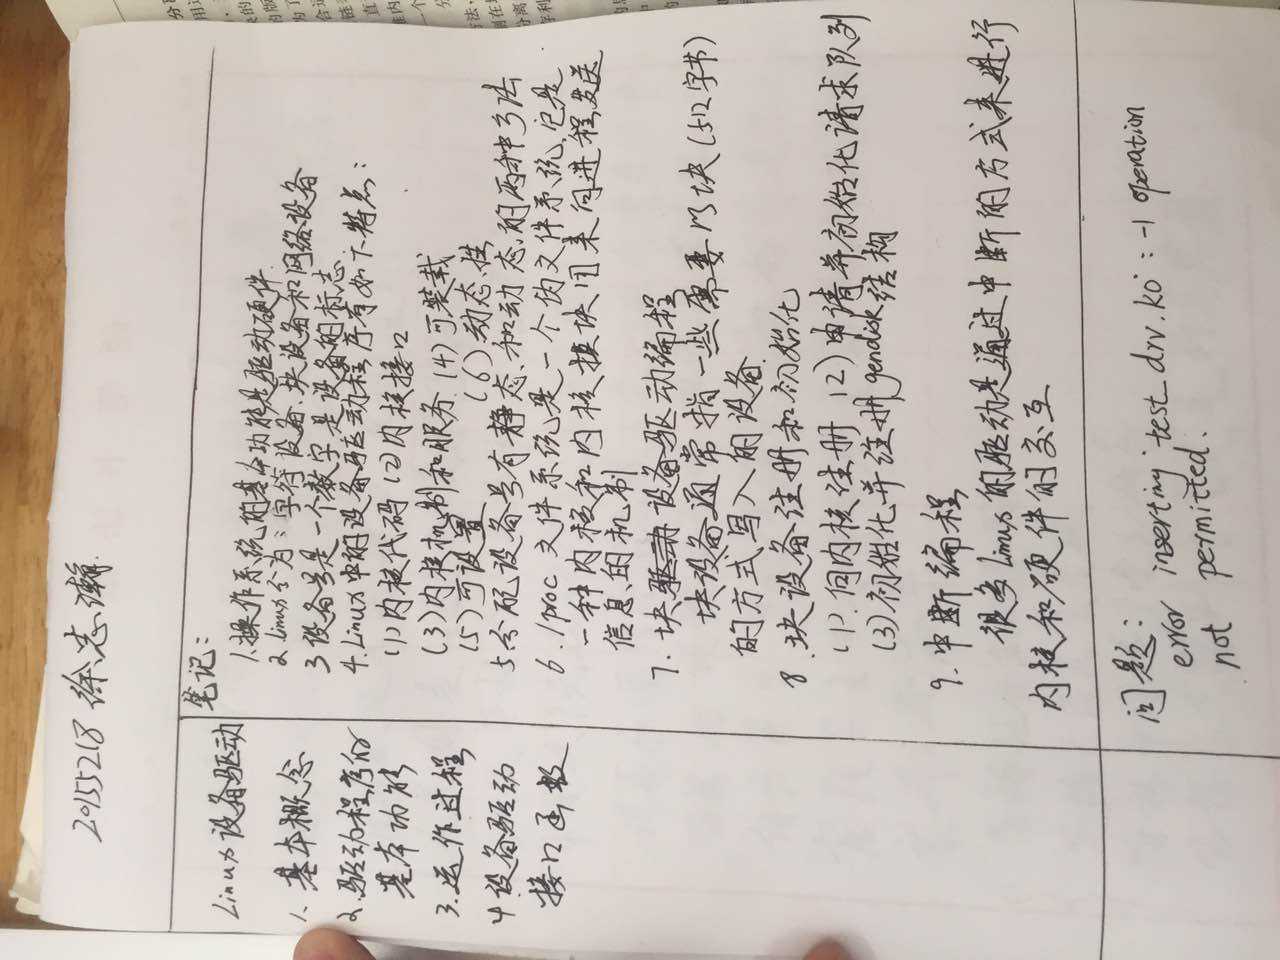 20155218 徐志瀚
Linux设备驱动
1. 基本概念
2. 驱动程序的
基本功能
3. 运作过程
4 设备驱动
接口函数
笔记:
1.操作系统的基本功能是驱动硬件
2 Linux分为:字符设备、块设备和网络设备
3 设备号是一个数字是设备的标志
4. Linux中的设备驱动程序有如下特点:
(1)内核代码 (2)内核接口
(3)内核机制和服务 (4)可装载
(5)可设置 (6)动态性
5 分配设备号有静态和动态的两种方法
6. /proc文件系统是一个伪文件系统,它是
一种内核和内核模块用来向进程发送
信息的机制
7. 块设备驱动编程
块设备通常指一些需要以块(512字节)
的方式写入的设备
8 块设备注册和初始化
(1)向内核注册 (2)申请并初始化请求队列
(3)初始化并注册gendisk结构
9. 中断编程
很多Linux的驱动是通过中断的方式来进行
内核和硬件的交互
问题:
error inserting test_drv.ko: -1 operation
not permitted.